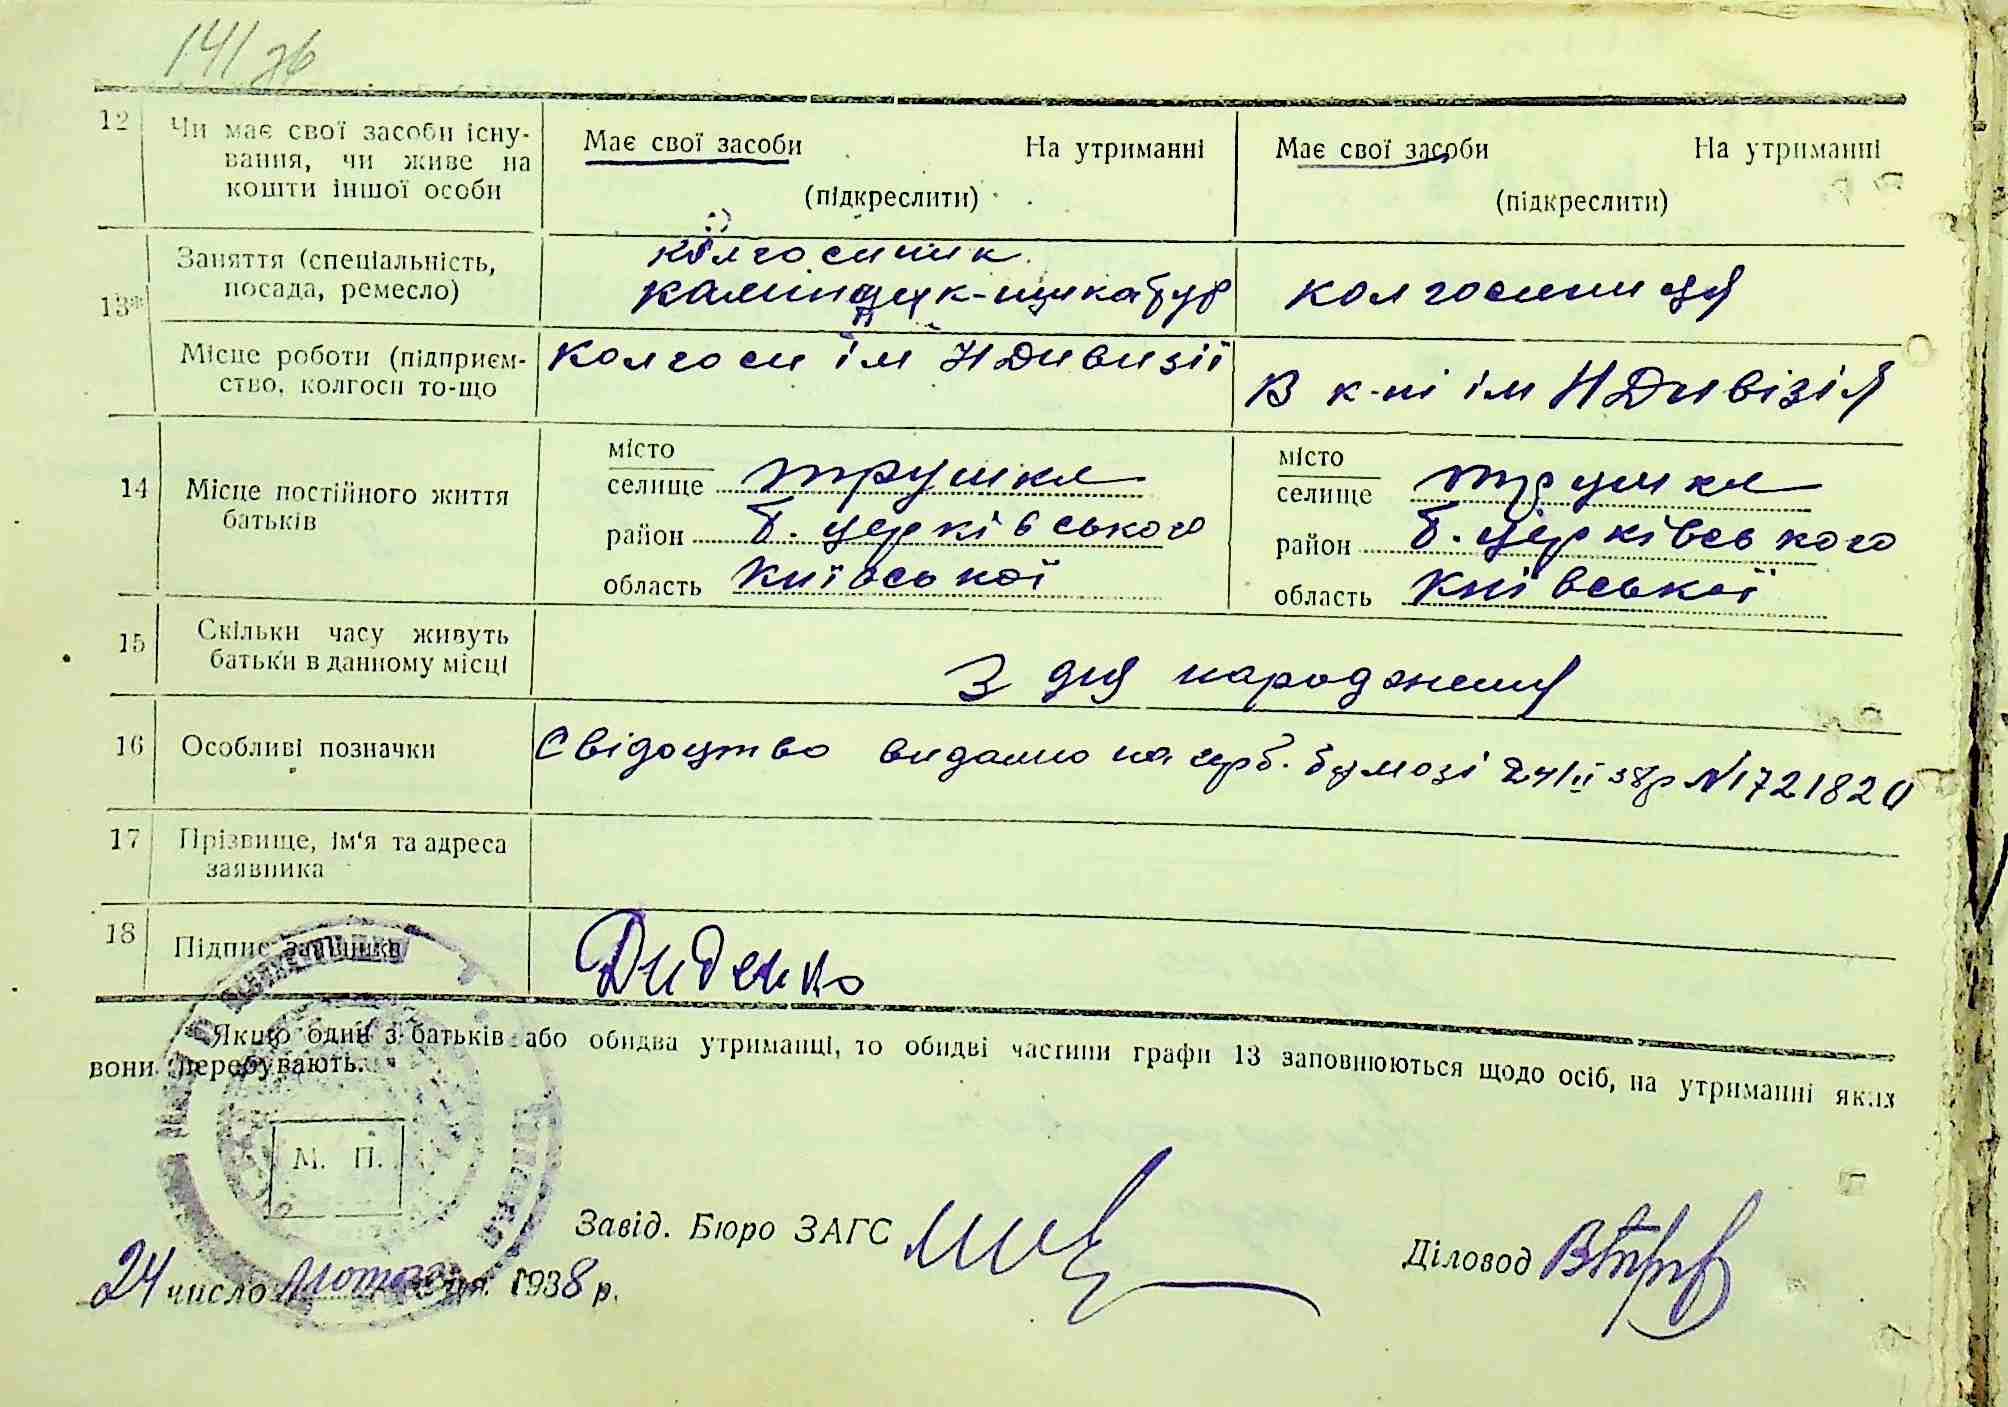 141 зв
12 Чи має свої засоби існу-
вання, чи живе на
кошти іншої особи
Має свої засоби На утриманні
(підкреслити)
Має свої засоби На утриманні
(підкреслити)
13* Заняття (спеціальність,
посада, ремесло)
колгоспник
колгоспниця
Місце роботи (підприєм-
ство, колгосп то-що
Колгосп ім Н Дивизії
В к-пі ім Н Дивізія
14 Місце постійного життя
батьків
місто
селище Трушки
район Б. Церківського
область Київської
місто
селище Трушки
район Б. Церківського
область Київської
15 Скільки часу живуть
батьки в данному місці
З дня народження
16 Особливі позначки
Свідоцтво видано на герб. бумазі 24/II 38р №1721820
17 Прізвище, ім'я та адреса
заявника
18 Підпис заявника
Диденко
Якщо один з батьків або обидва утриманці, то обидві частини графи 13 заповнюються щодо осіб, на утриманні яких
вони перебувають.
М. П.
Завід. Бюро ЗАГС
Діловод
24 число лютого 1938 р.